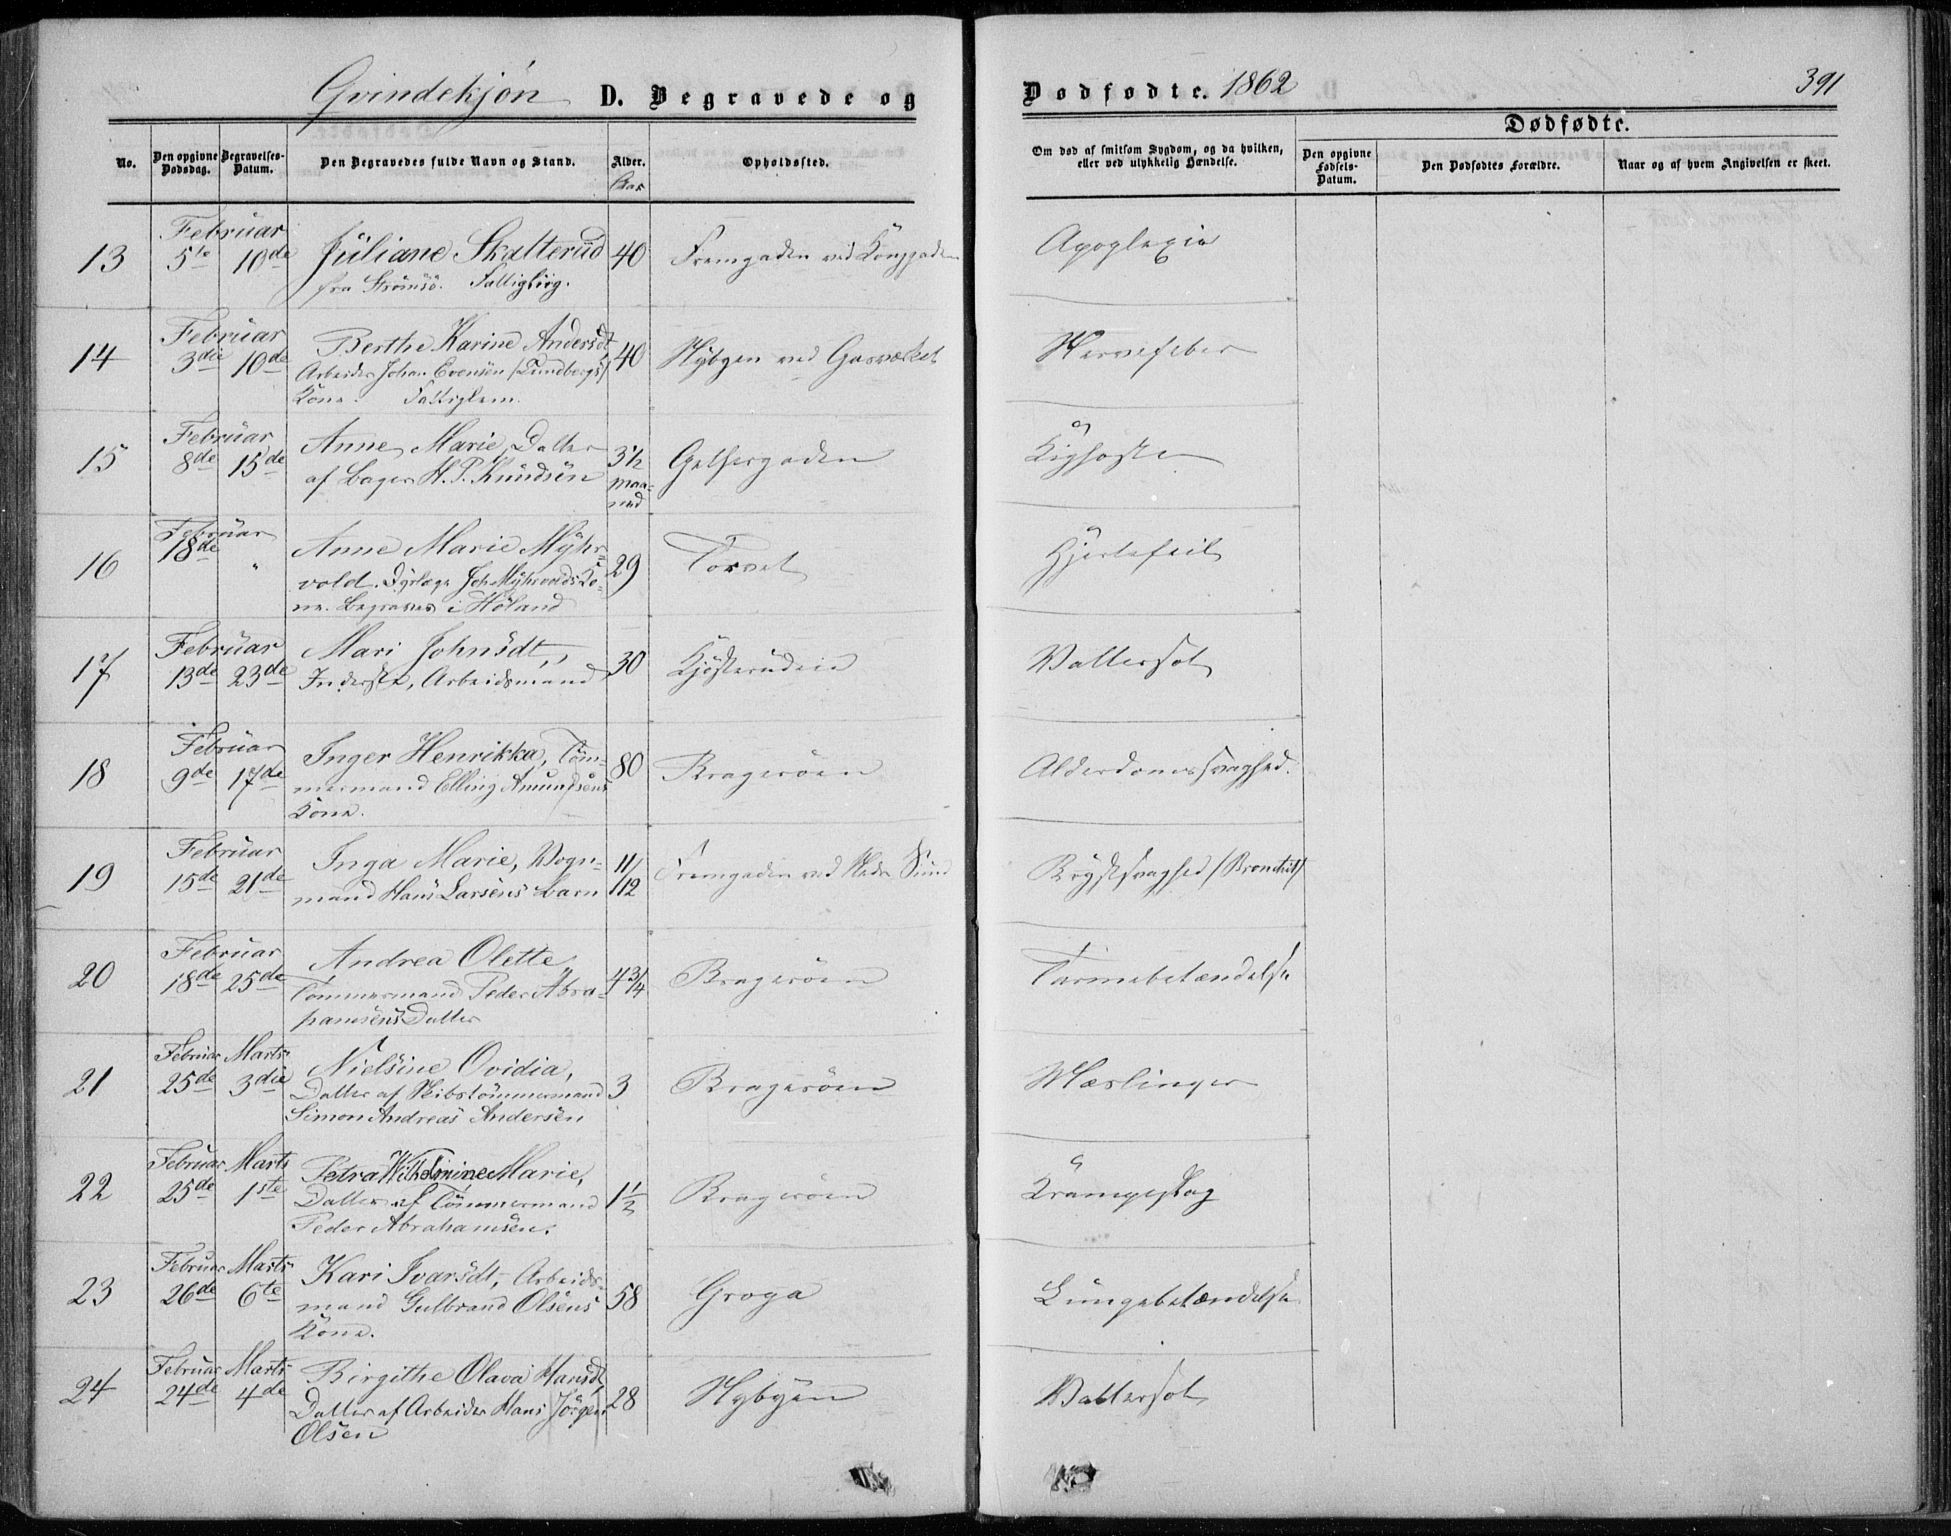 Qvindekjön D. Begravede og
Dødfødte. 1862
391
No.
Den opgivne Dødsdag.
Begravelses-Datum.
Den Begravedes fulde Navn og Stand.
Alder.
Aar
Opholdssted.
Om død af smitsom Sygdom, og da hvilken,
eller ved ulykkelig Hændelse.
Dødfødte.
Den opgivne Fødsels-Datum.
Den Dødfødtes Forældre.
Naar og af hvem Angivelsen er skeet.
13 Februar 5te 10de Juliane Skalterud 40 Fremgaden ved Apoplexia
fra Strömsö. Fattigbög.
14 Februar 3die 10de Berthe Karine Andersdt 40 Nybyen ved Gasværket Nervefeber
Arbeider Johan Evensen /Lundbergs/
Kone. Fattiglem.
15 Februar 8de 15de Anne Marie, Datter 3½ Maaned Kighoste
af Bager H. P. Knudsen
16 Februar 18de " Anne Marie Myhr= 29 Torvet Hjertefeil
vold. Dyrlæge Joh. Myhrvolds Ko=
ne. Begraves i Höland
17 Februar 13de 23de Mari Johnsdt, 30 Kjösterudeie Vattersot
Inderste, Arbeidsmand
18 Februar 9de 17de Inger Henrikka, Töm= 80 Bragerøen Alderdomssvaghed.
mermand Elling Amundsens
Kone.
19 Februar 15de 21de Inga Marie, Vogn= 11/12 Fremgaden ved Sund Brystsvaghed /Bronchit/
mand Hans Larsens Barn
20 Februar 18de 25de Andrea Olette 4¾ Bragerøen Tarmebetændelse
Tömmermand Peder Abra=
hamsens Datter
21 Februar 25de Marts 3die Nielsine Ovidia, 3 Bragerøen Mæslinger
Datter af Skibstömmermand
Simon Andreas Andersen
22 Februar 25de Marts 1ste Petra Wilhelmine Marie, 1½ Bragerøen Krampeslag
Datter af Tömmermand
Peder Abrahamsen.
23 Februar 26de Marts 6te Kari Ivarsdt, Arbeids= 58 Groga Lungebetændelse
mand Gulbrand Olsens
Kone.
24 Februar 24de Marts 4de Birgithe Olava Hansdt, 28 Nybyen Vattersot
Datter af Arbeider Hans Jörgen
Olsen